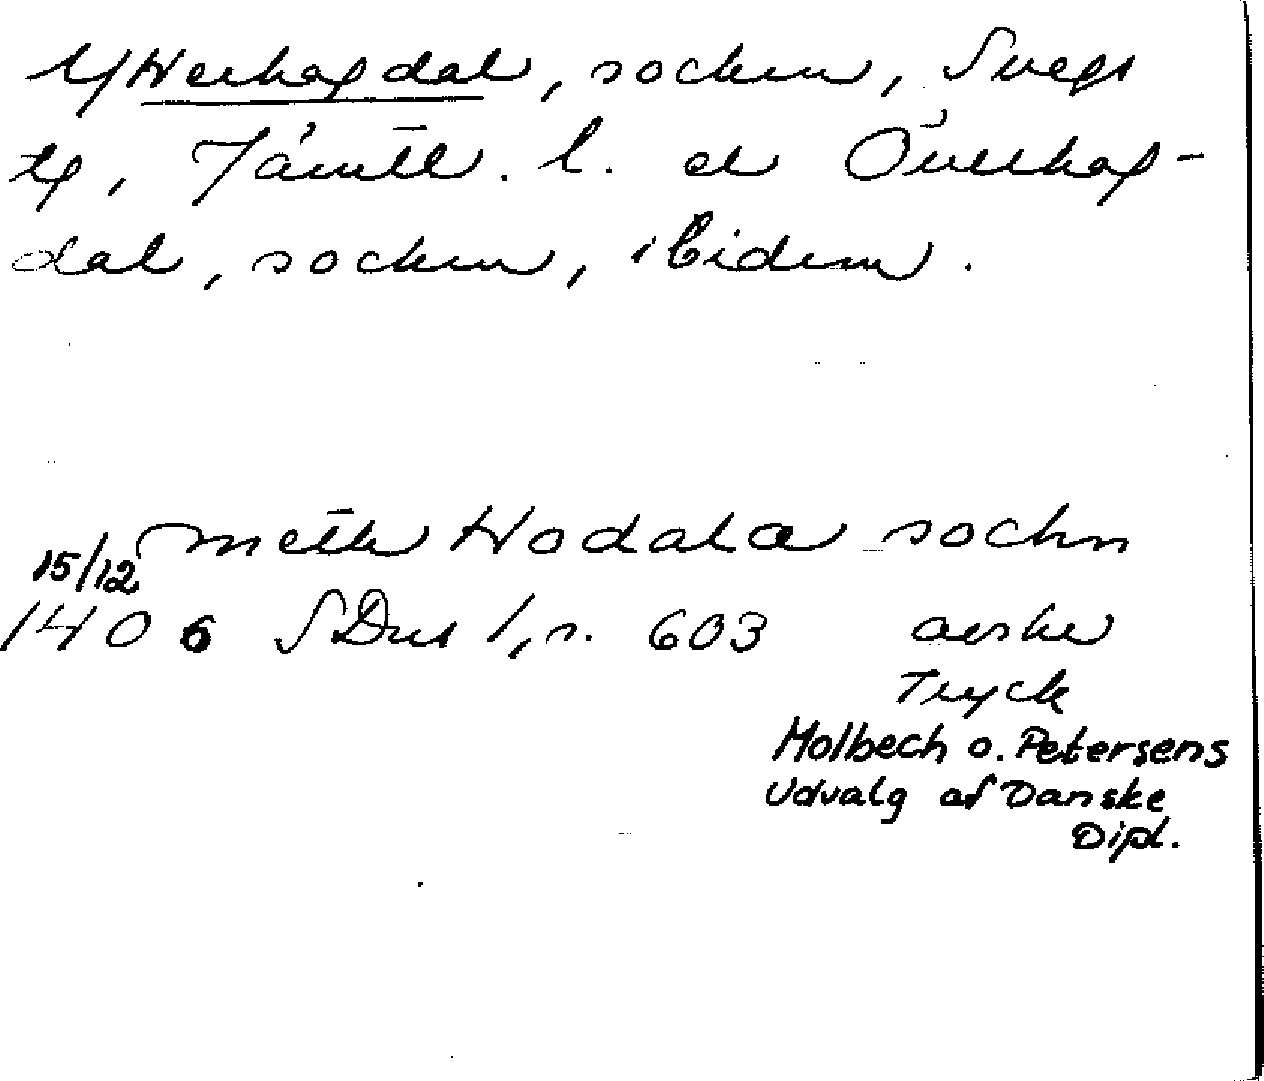 Ytterhogdal, socken, Svegs
tg, Jämtl. l. o Överhog-
dal, socken, ibidem.
mellr Hodala sochn
15/12
1406 SDns 1, s. 603 avskr
Tryck
Molbech o. Petersens
Udvalg af Danske
Dipl.